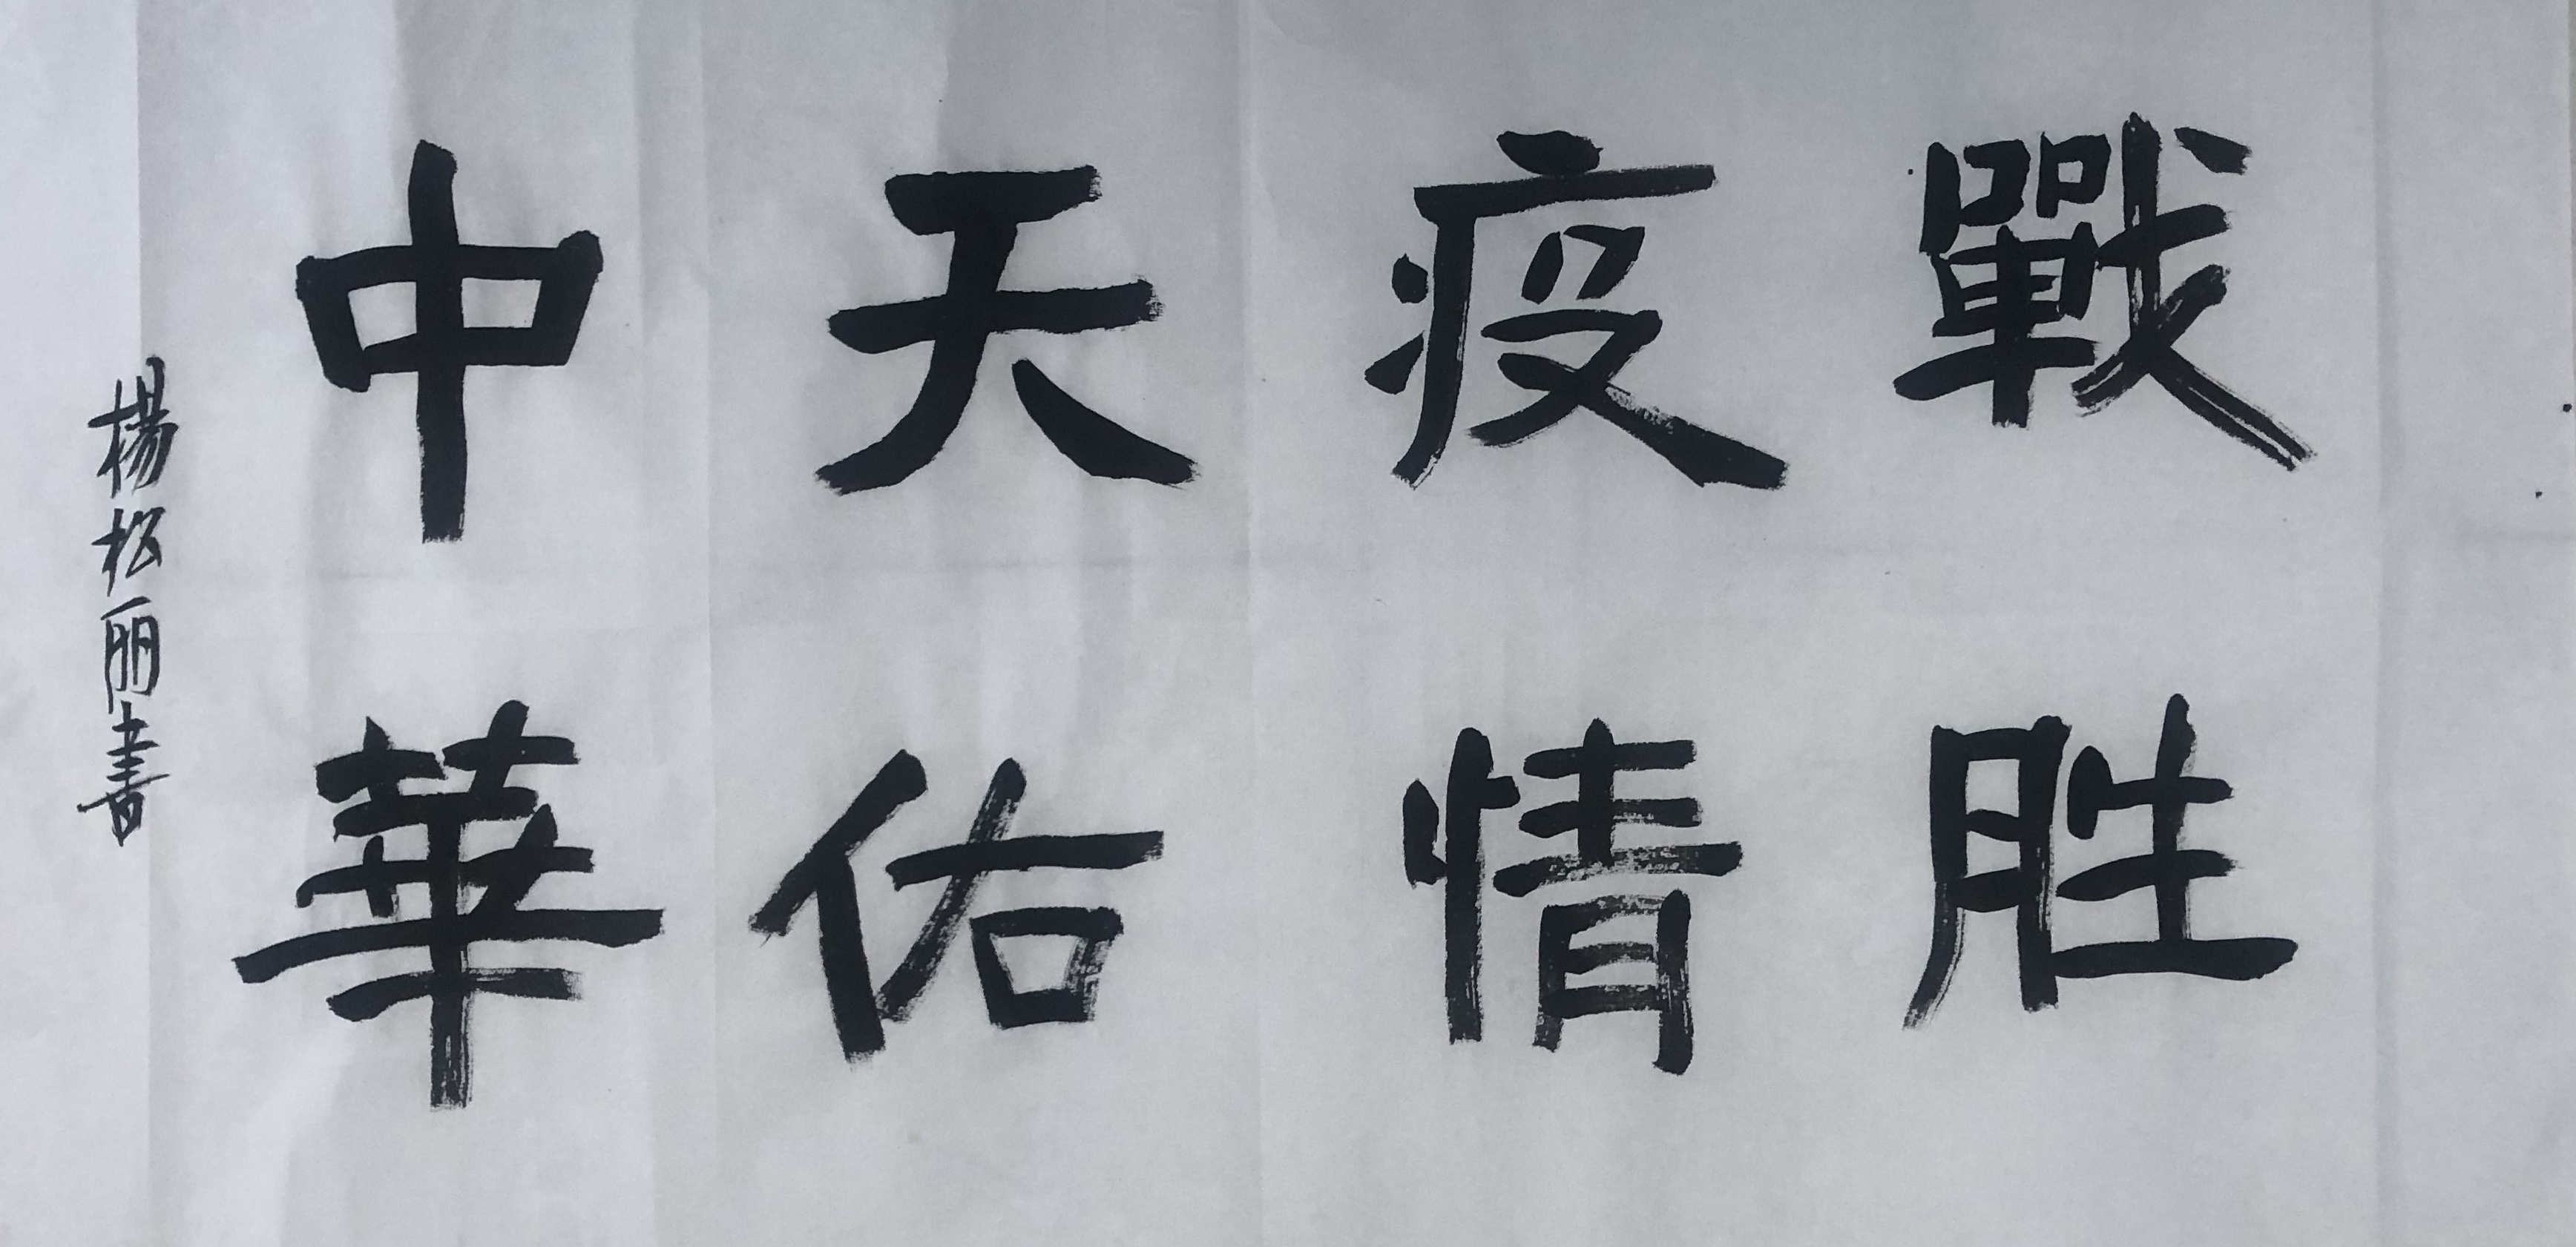 戰胜
疫情
天佑
中華
楊松丽書